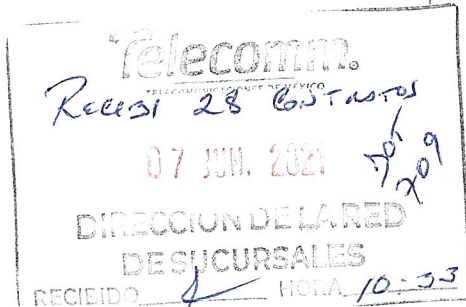 Telecomm.
TELECOMUNICACIONES DE MÉXICO
Recibi 28 Contratos
07 JUN. 2021
DIRECCION DE LA RED
DE SUCURSALES
RECIBIDO HORA 10-33